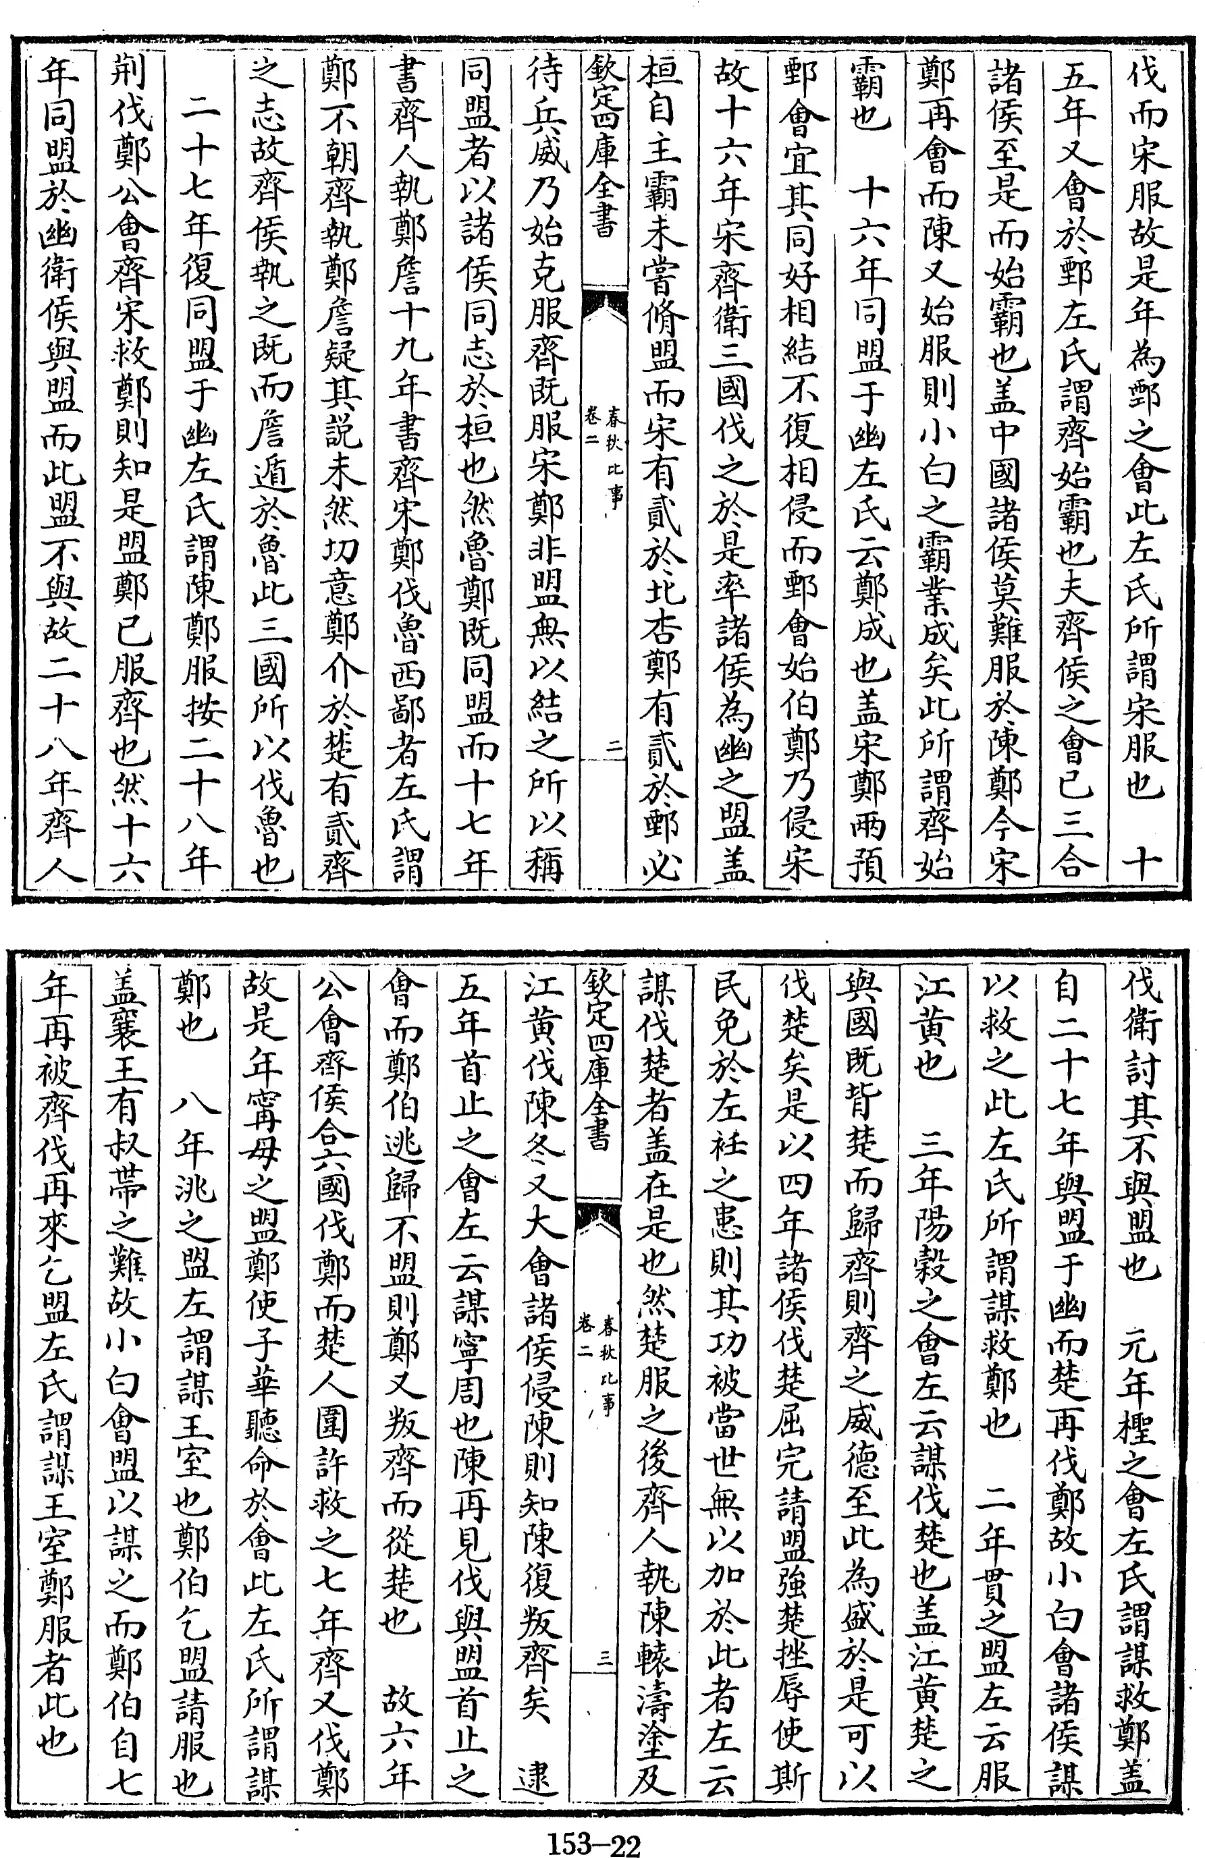 伐而宋服故是年為鄄之會此左氏所謂宋服也　十
五年又會於鄄左氏謂齊始霸也夫齊侯之會已三合
諸侯至是而始霸也盖中國諸侯莫難服於陳鄭今宋
鄭再會而陳又始服則小白之霸業成矣此所謂齊始
霸也　十六年同盟于幽左氏云鄭成也盖宋鄭兩預
鄄會宜其同好相結不復相侵而鄄會始伯鄭乃侵宋
故十六年宋齊衛三國伐之於是率諸侯為幽之盟盖
桓自主霸未嘗脩盟而宋有貳於北杏鄭有貳於鄄必
欽定四庫全書
春秋比事
卷二
二
待兵威乃始克服齊既服宋鄭非盟無以結之所以稱
同盟者以諸侯同志於桓也然魯鄭既同盟而十七年
書齊人執鄭詹十九年書齊宋鄭伐魯西鄙者左氏謂
鄭不朝齊執鄭詹疑其説未然切意鄭介於楚有貳齊
之志故齊侯執之既而詹遁於魯此三國所以伐魯也
二十七年復同盟于幽左氏謂陳鄭服按二十八年
荆伐鄭公會齊宋救鄭則知是盟鄭已服齊也然十六
年同盟於幽衛侯與盟而此盟不與故二十八年齊人
伐衛討其不與盟也　元年檉之會左氏謂謀救鄭盖
自二十七年與盟于幽而楚再伐鄭故小白會諸侯謀
以救之此左氏所謂謀救鄭也　二年貫之盟左云服
江黄也　三年陽穀之會左云謀伐楚也盖江黄楚之
與國既背楚而歸齊則齊之威德至此為盛於是可以
伐楚矣是以四年諸侯伐楚屈完請盟強楚挫辱使斯
民免於左衽之患則其功被當世無以加於此者左云
謀伐楚者盖在是也然楚服之後齊人執陳轅濤塗及
欽定四庫全書
春秋比事
卷二
三
江黄伐陳冬又大會諸侯侵陳則知陳復叛齊矣　逮
五年首止之會左云謀寧周也陳再見伐與盟首止之
會而鄭伯逃歸不盟則鄭又叛齊而從楚也　故六年
公會齊侯合六國伐鄭而楚人圍許救之七年齊又伐鄭
故是年甯毋之盟鄭使子華聽命於會此左氏所謂謀
鄭也　八年洮之盟左謂謀王室也鄭伯乞盟請服也
盖襄王有叔帶之難故小白會盟以謀之而鄭伯自七
年再被齊伐再來乞盟左氏謂謀王室鄭服者此也
153-22